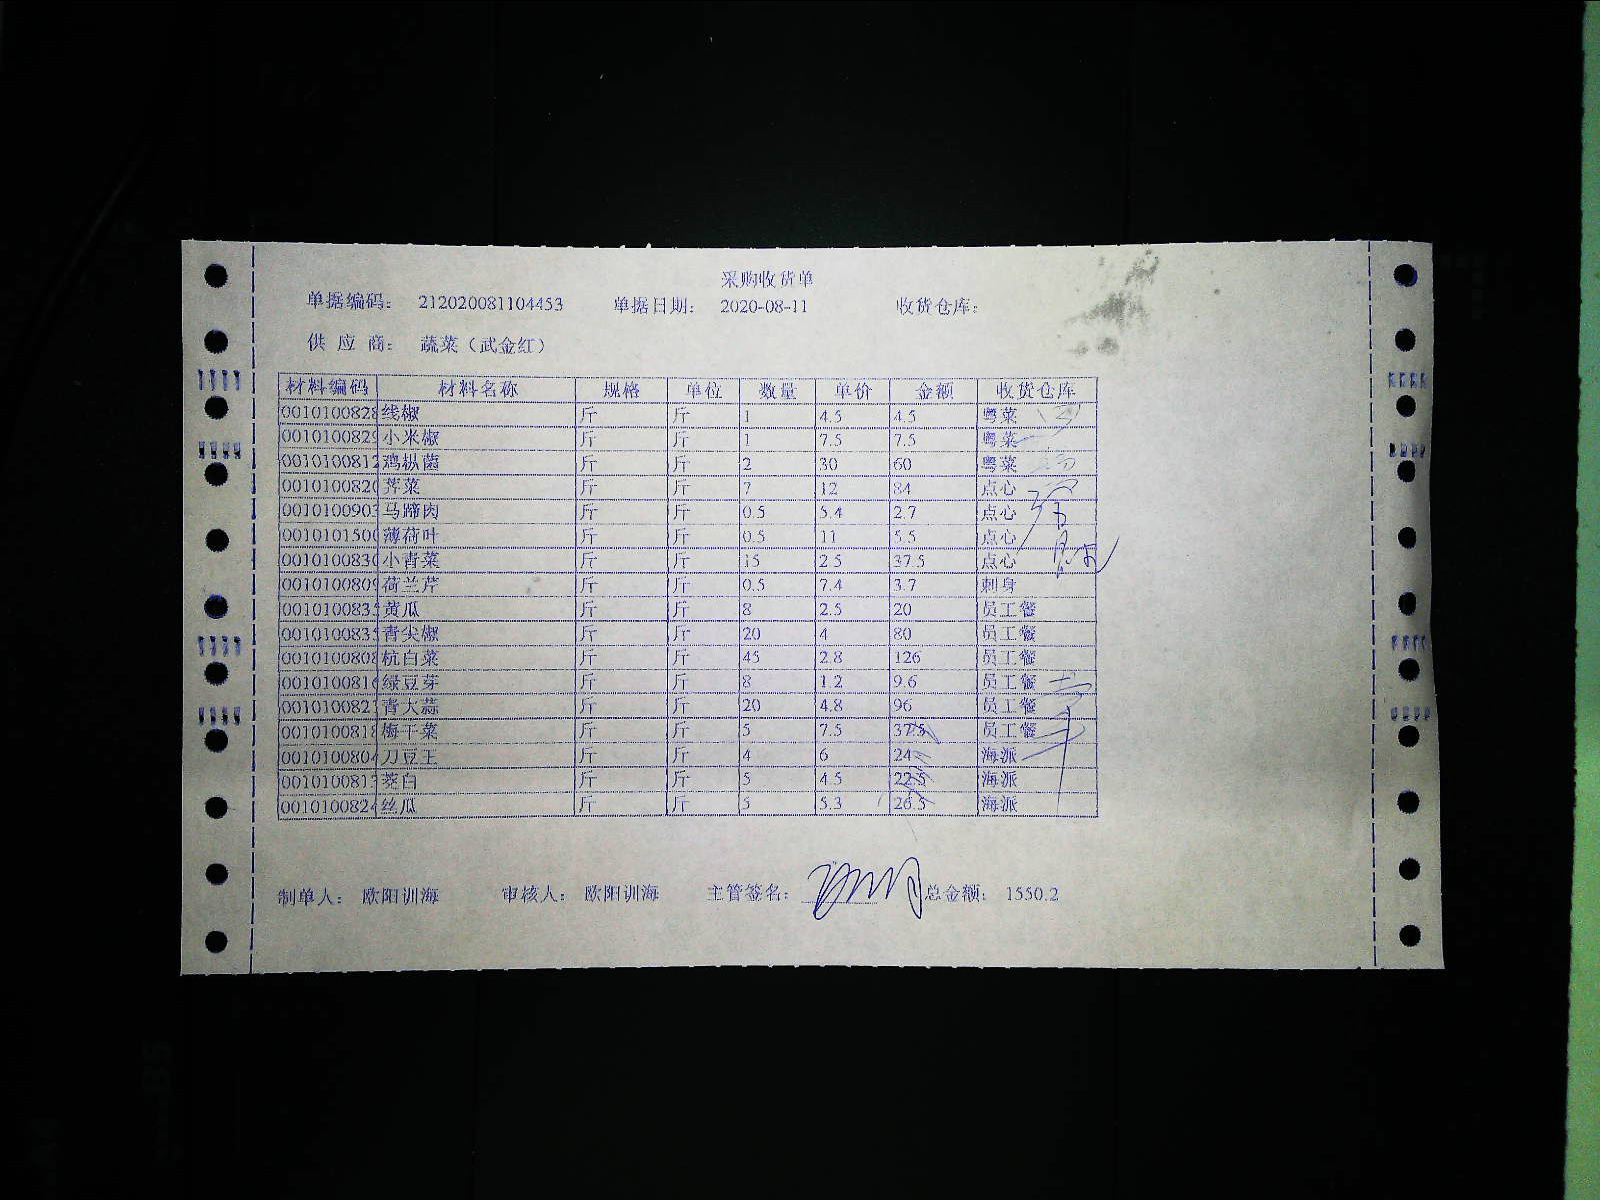 采购收货单
单据编码： 212020081104453 单据日期： 2020-08-11 收货仓库：
供 应 商： 蔬菜（武金红）
材料编码 材料名称 规格 单位 数量 单价 金额 收货仓库
0010100828 线椒 斤 斤 1 4.5 4.5 粤菜
0010100829 小米椒 斤 斤 1 7.5 7.5 粤菜
001010081 鸡枞菌 斤 斤 2 30 60 粤菜
001010082 荠菜 斤 斤 7 12 84 点心
001010090 马蹄肉 斤 斤 0.5 5.4 2.7 点心
001010150 薄荷叶 斤 斤 0.5 11 5.5 点心
001010083 小青菜 斤 斤 15 2.5 37.5 点心
001010080 荷兰芹 斤 斤 0.5 7.4 3.7 刺身
001010083 黄瓜 斤 斤 8 2.5 20 员工餐
001010083 青尖椒 斤 斤 20 4 80 员工餐
001010080 杭白菜 斤 斤 45 2.8 126 员工餐
001010081 绿豆芽 斤 斤 8 1.2 9.6 员工餐
001010082 青大蒜 斤 斤 20 4.8 96 员工餐
001010081 梅干菜 斤 斤 5 7.5 37.5 员工餐
001010080 刀豆王 斤 斤 4 6 24 海派
001010081 茭白 斤 斤 5 4.5 22.5 海派
001010082 丝瓜 斤 斤 5 5.3 26.5 海派
制单人： 欧阳训海 审核人： 欧阳训海 主管签名： 总金额： 1550.2